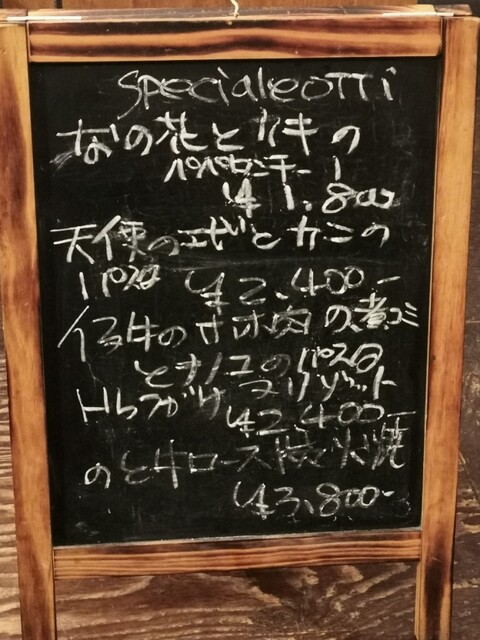 Specialeotti
なの花とカキの
ペペロンチーノ
¥1,800
天使のエビとカニの
パスタ ¥2,400-
仔牛のすね肉の煮こミ
とキノコのパスタ
トリフがけ リゾット
¥2,400-
牛ロース 炭火焼
¥3,800-